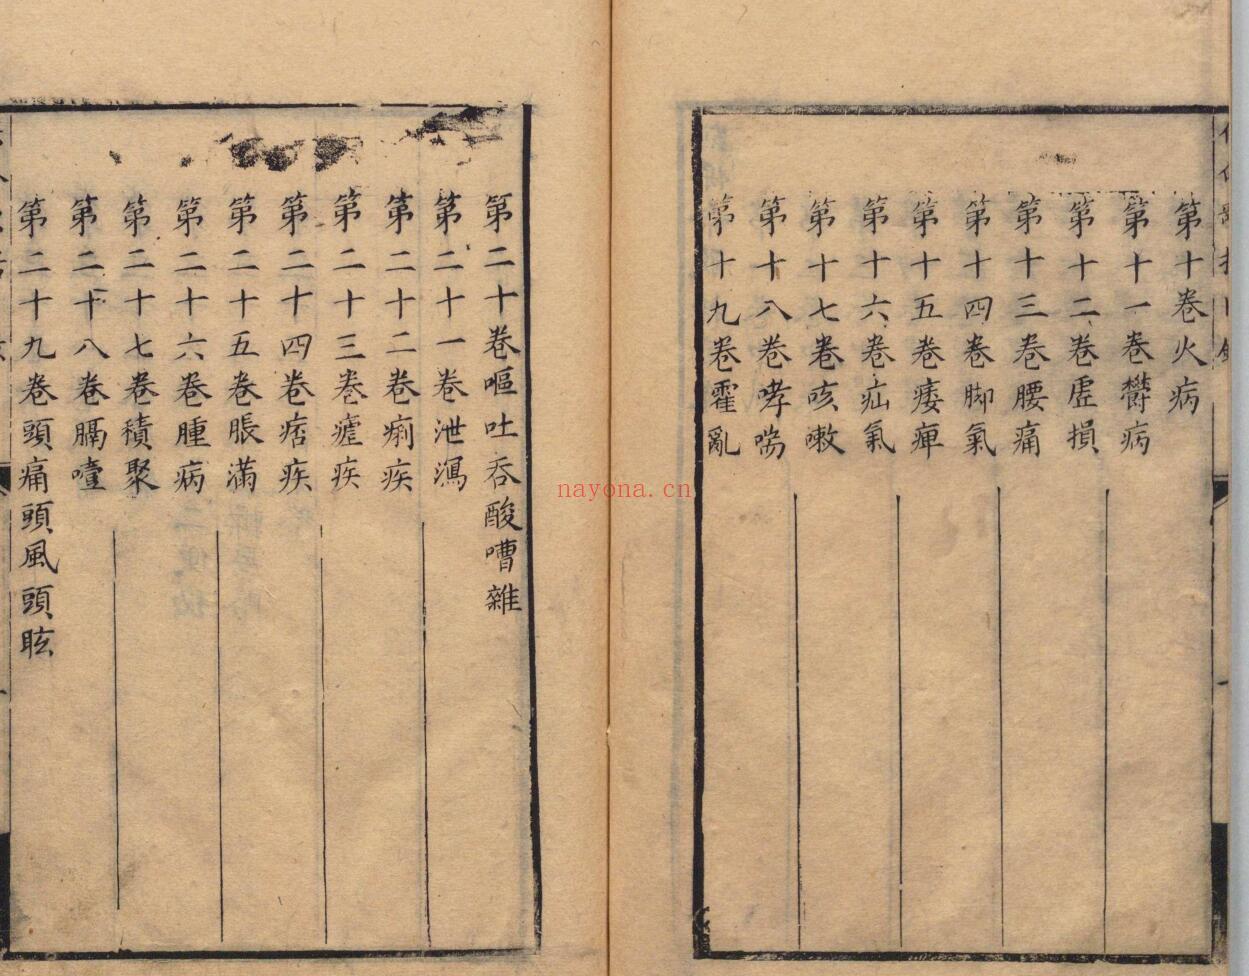 第十卷火病
第十一卷欝病
第十二卷虚損
第十三卷腰痛
第十四卷脚氣
第十五卷痿痺
第十六卷疝氣
第十七卷咳嗽
第十八卷哮喘
第十九卷霍亂
第二十卷嘔吐吞酸嘈雜
第二十一卷泄瀉
第二十二卷痢疾
第二十三卷瘧疾
第二十四卷痞疾
第二十五卷脹滿
第二十六卷腫病
第二十七卷積聚
第二十八卷膈噎
第二十九卷頭痛頭風頭眩
nayona.cn